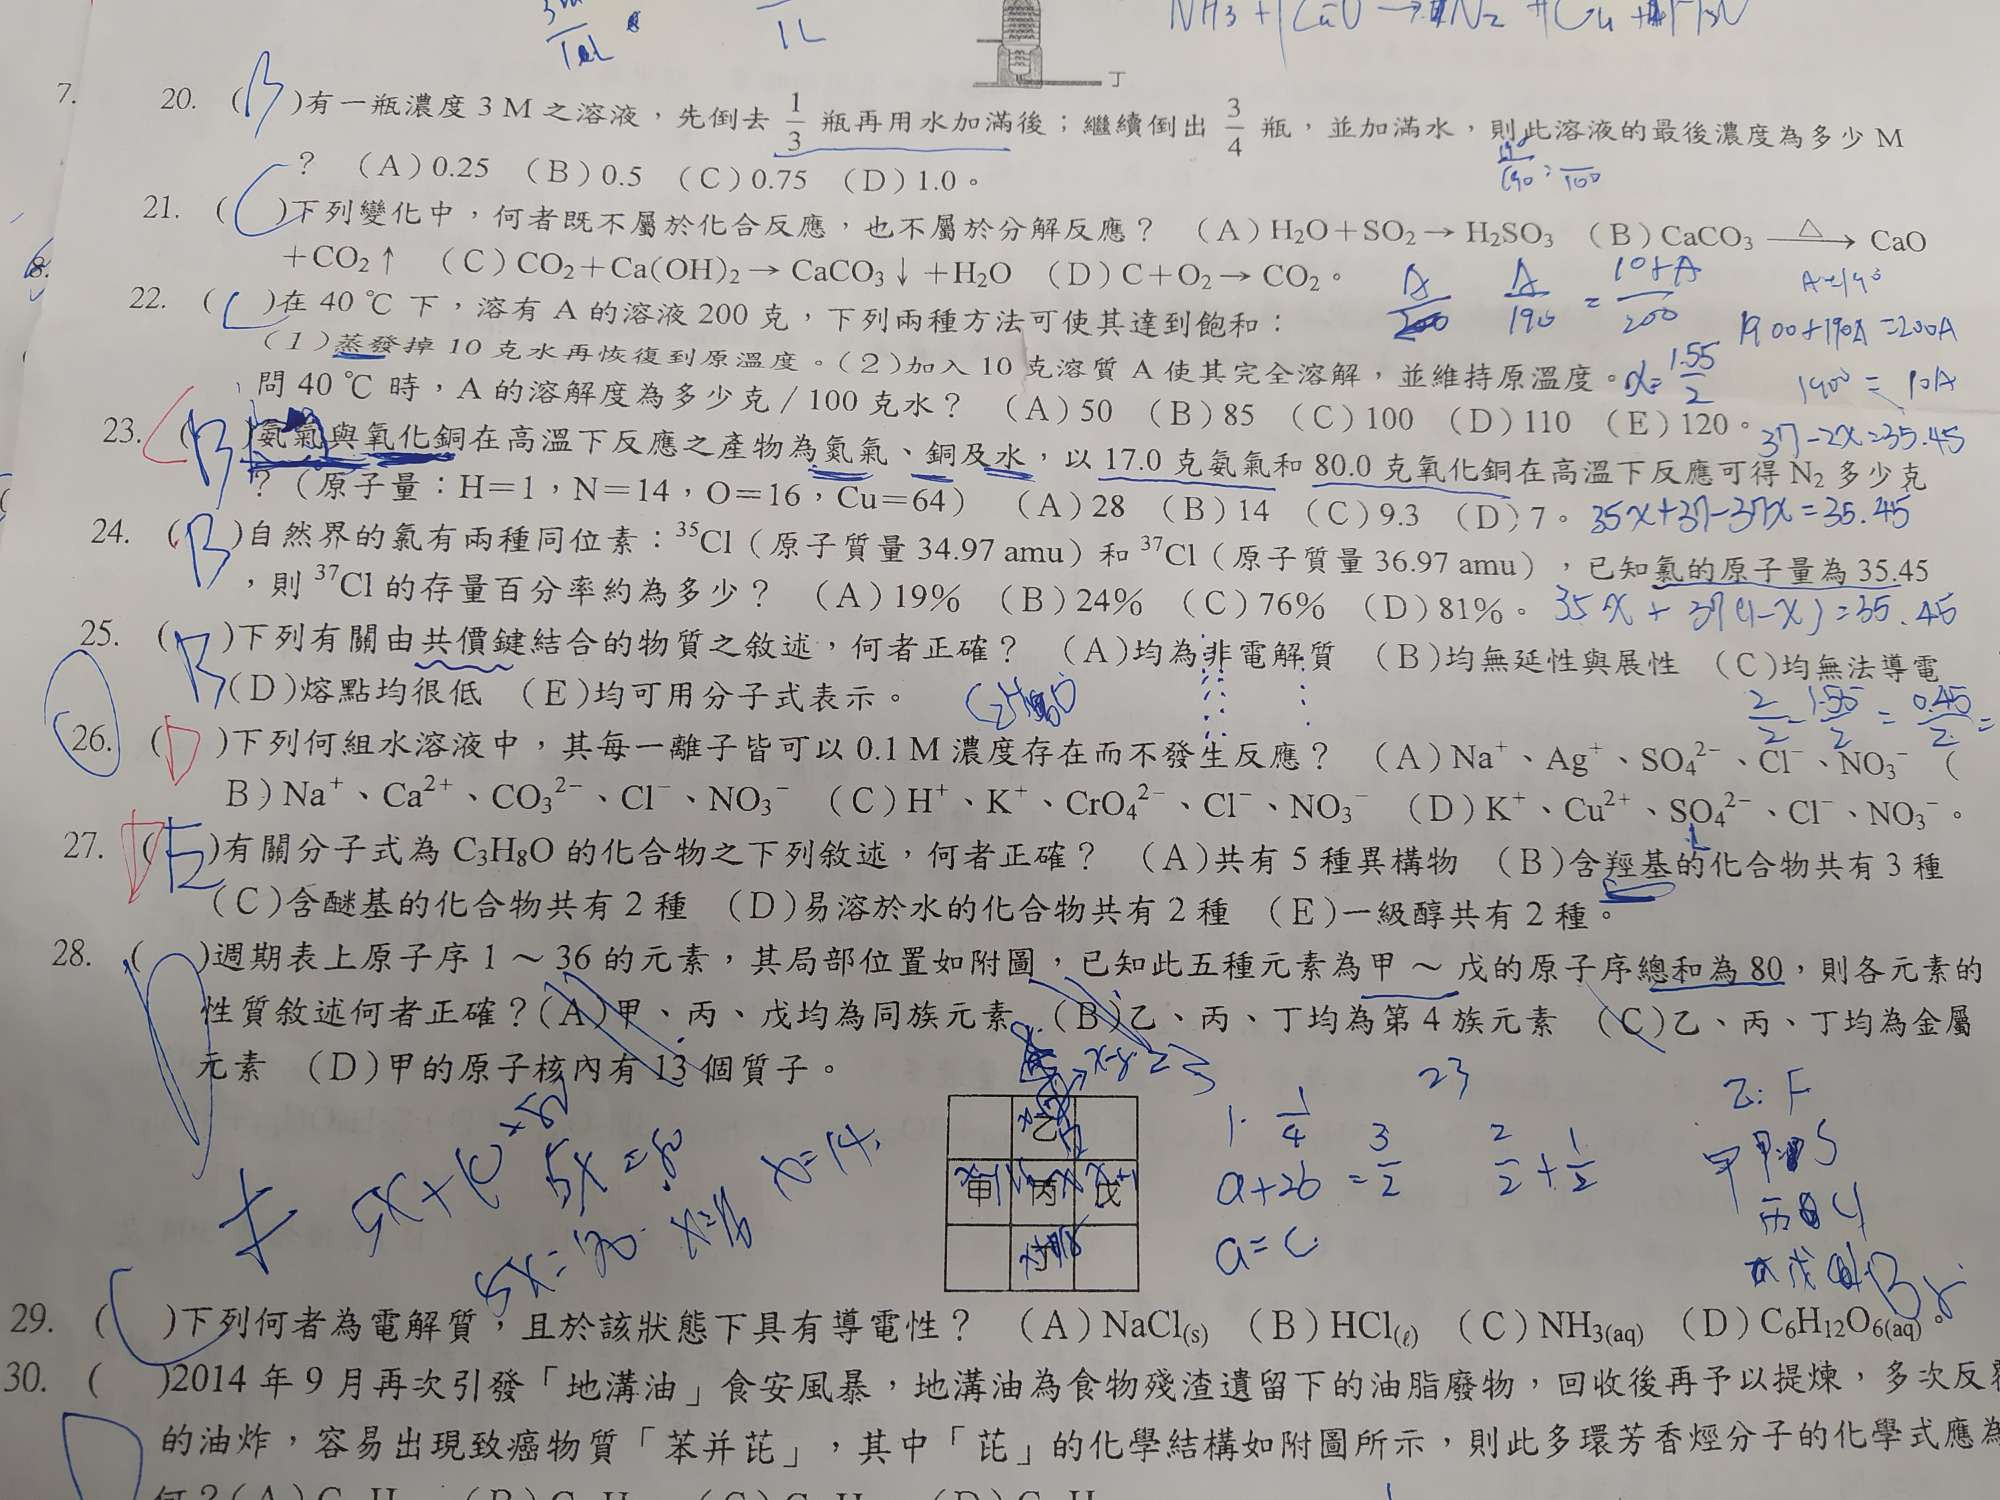 NH3 + CuO → N2 + Cu + H2O
1L
丁
7.
20. (B)有一瓶濃度 3 M 之溶液，先倒去 1/3 瓶再用水加滿後；繼續倒出 3/4 瓶，並加滿水，則此溶液的最後濃度為多少 M
？ （A）0.25 （B）0.5 （C）0.75 （D）1.0。
21. (C)下列變化中，何者既不屬於化合反應，也不屬於分解反應？ （A）H₂O＋SO₂→ H₂SO₃ （B）CaCO₃ —△→ CaO
＋CO₂↑ （C）CO₂＋Ca(OH)₂→ CaCO₃↓＋H₂O （D）C＋O₂→ CO₂。
8.
22. (C)在 40 ℃ 下，溶有 A 的溶液 200 克，下列兩種方法可使其達到飽和：
A/190 = 10+A/200
1900+190A=200A
（1）蒸發掉 10 克水再恢復到原溫度。（2）加入 10 克溶質 A 使其完全溶解，並維持原溫度。
x= 1.55/2
1900 = 10A
問 40 ℃ 時，A 的溶解度為多少克／100 克水？ （A）50 （B）85 （C）100 （D）110 （E）120。
37-2x=35.45
23. (B)氨氣與氧化銅在高溫下反應之產物為氮氣、銅及水，以 17.0 克氨氣和 80.0 克氧化銅在高溫下反應可得 N₂ 多少克
？（原子量：H＝1，N＝14，O＝16，Cu＝64） （A）28 （B）14 （C）9.3 （D）7。
35x+37-37x=35.45
24. (B)自然界的氯有兩種同位素：³⁵Cl（原子質量 34.97 amu）和 ³⁷Cl（原子質量 36.97 amu），已知氯的原子量為 35.45
，則 ³⁷Cl 的存量百分率約為多少？ （A）19% （B）24% （C）76% （D）81%。
35x + 37(1-x)=35.45
25. (B)下列有關由共價鍵結合的物質之敘述，何者正確？ （A）均為非電解質 （B）均無延性與展性 （C）均無法導電
（D）熔點均很低 （E）均可用分子式表示。
2/2 - 1.55/2 = 0.45/2 =
26. (D)下列何組水溶液中，其每一離子皆可以 0.1 M 濃度存在而不發生反應？ （A）Na⁺、Ag⁺、SO₄²⁻、Cl⁻、NO₃⁻ （
B）Na⁺、Ca²⁺、CO₃²⁻、Cl⁻、NO₃⁻ （C）H⁺、K⁺、CrO₄²⁻、Cl⁻、NO₃⁻ （D）K⁺、Cu²⁺、SO₄²⁻、Cl⁻、NO₃⁻。
27. (E)有關分子式為 C₃H₈O 的化合物之下列敘述，何者正確？ （A）共有 5 種異構物 （B）含羥基的化合物共有 3 種
（C）含醚基的化合物共有 2 種 （D）易溶於水的化合物共有 2 種 （E）一級醇共有 2 種。
28. ( )週期表上原子序 1 ～ 36 的元素，其局部位置如附圖，已知此五種元素為甲 ～ 戊的原子序總和為 80，則各元素的
性質敘述何者正確？（A）甲、丙、戊均為同族元素 （B）乙、丙、丁均為第 4 族元素 （C）乙、丙、丁均為金屬
元素 （D）甲的原子核內有 13 個質子。
23
乙: F
乙
1. 1/4
a+2b = 3/2
2/2 + 1/2
5x=80
x=14.
甲 丙 戊
a=c
x=16
丁
29. (C)下列何者為電解質，且於該狀態下具有導電性？ （A）NaCl(s) （B）HCl(ℓ) （C）NH₃(aq) （D）C₆H₁₂O₆(aq)。
30. (D)2014 年 9 月再次引發「地溝油」食安風暴，地溝油為食物殘渣遺留下的油脂廢物，回收後再予以提煉，多次反覆
的油炸，容易出現致癌物質「苯并芘」，其中「芘」的化學結構如附圖所示，則此多環芳香烴分子的化學式應為
何？（A）